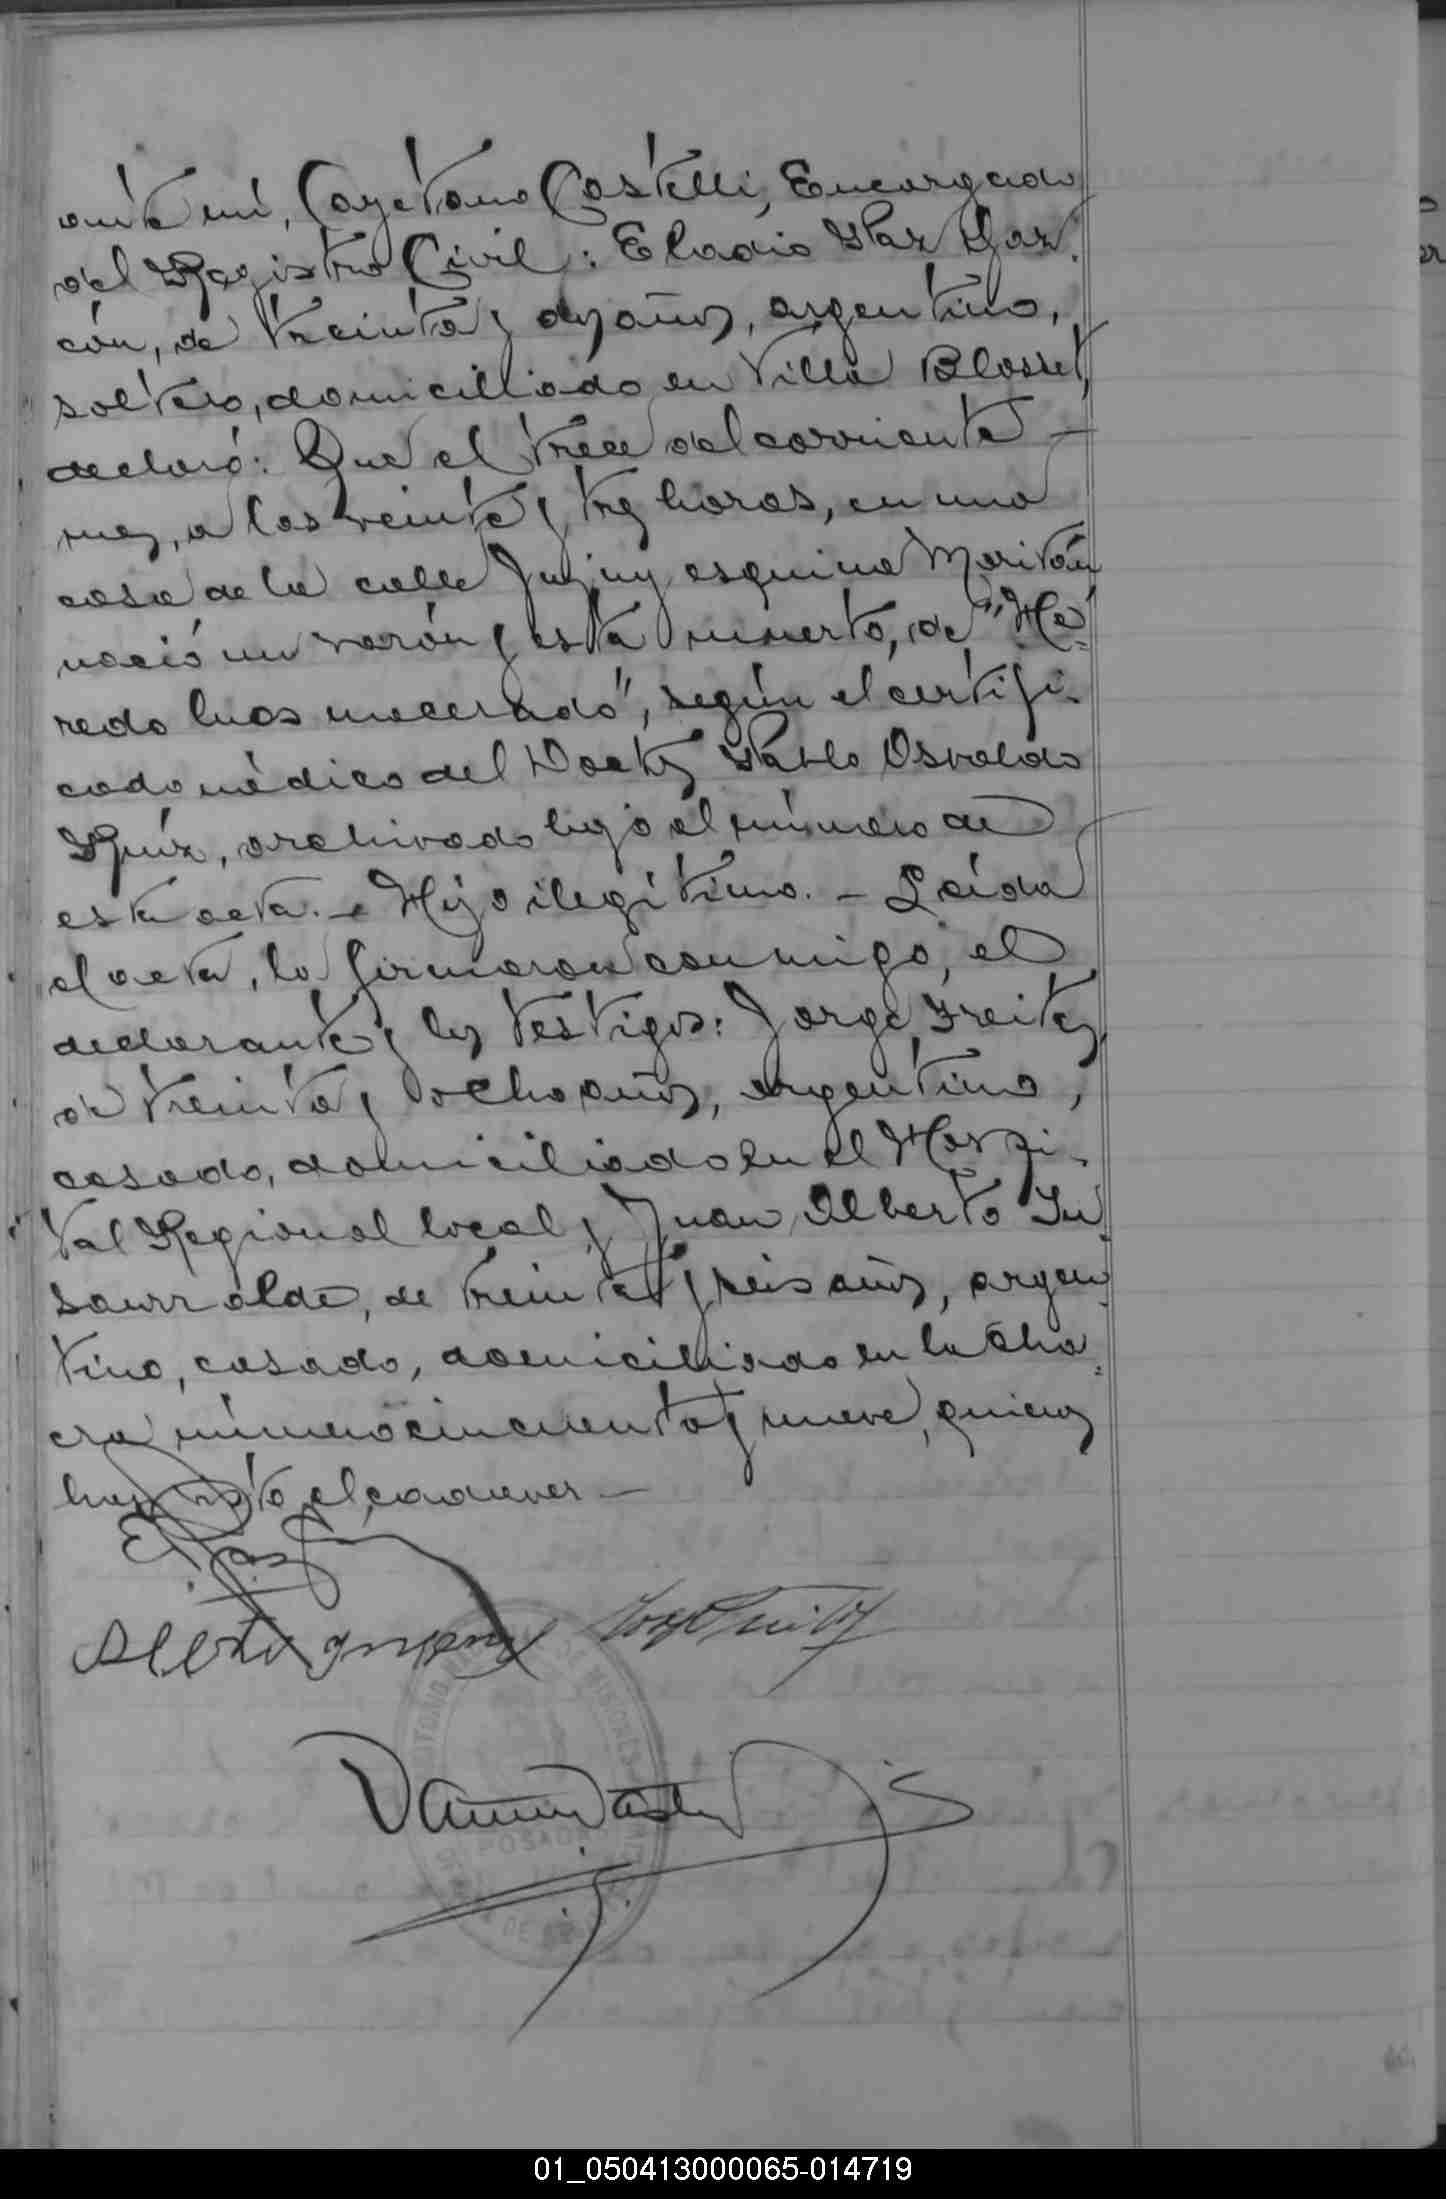 ante mí, Cayetano Castelli, Encargado
del Registro Civil: Eladio Paz Gar-
cón, de treinta y dos años, argentino,
soltero, domicilliado en Villa Blosset,
declaró: Que el trece del corriente —
mes, a las veinte y tres horas, en una
casa de la calle Jujuy esquina Maritán
nació un varón y está muerto, de "He-
redo lues macerado", según el certifi-
cado médico del Doctor Pablo Osvaldo
Ruíz, archivado bajo el número de
esta acta. — Hijo ilegítimo. — Leída
el acta, la firmaron conmigo, el
declarante y los testigos: Jorge Freites,
de treinta y ocho años, argentino,
casado, domiciliado en el Hospi-
tal Regional local y Juan Alberto In-
saurralde, de treinta y seis años, argen-
tino, casado, domiciliado en la cha-
cra número cincuenta y nueve, quienes
han visto el cadaver —
E. Paz
POSADAS
DE MISIONES
01_050413000065-014719